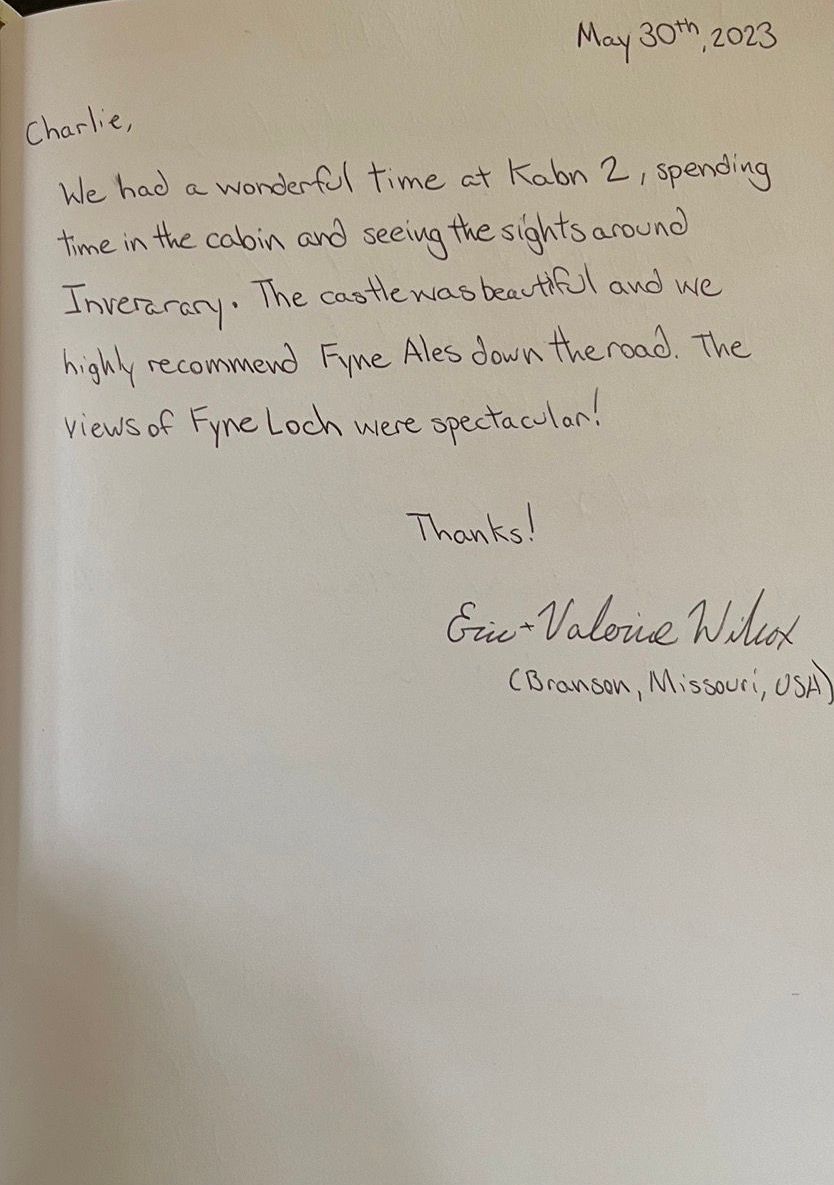 May 30th, 2023
Charlie,
We had a wonderful time at Kabn 2, spending
time in the cabin and seeing the sights around
Inverarary. The castle was beautiful and we
highly recommend Fyne Ales down the road. The
views of Fyne Loch were spectacular!
Thanks!
Eric + Valerie Wilcox
(Branson, Missouri, USA)